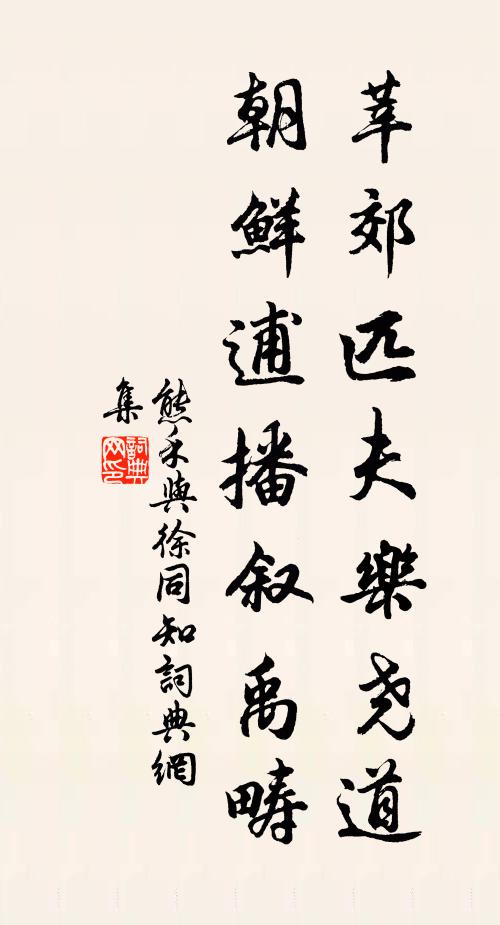 莘郊匹夫樂尧道
朝鮮逋播叙禹疇
熊禾與徐同知詞典網
集
詞典网印